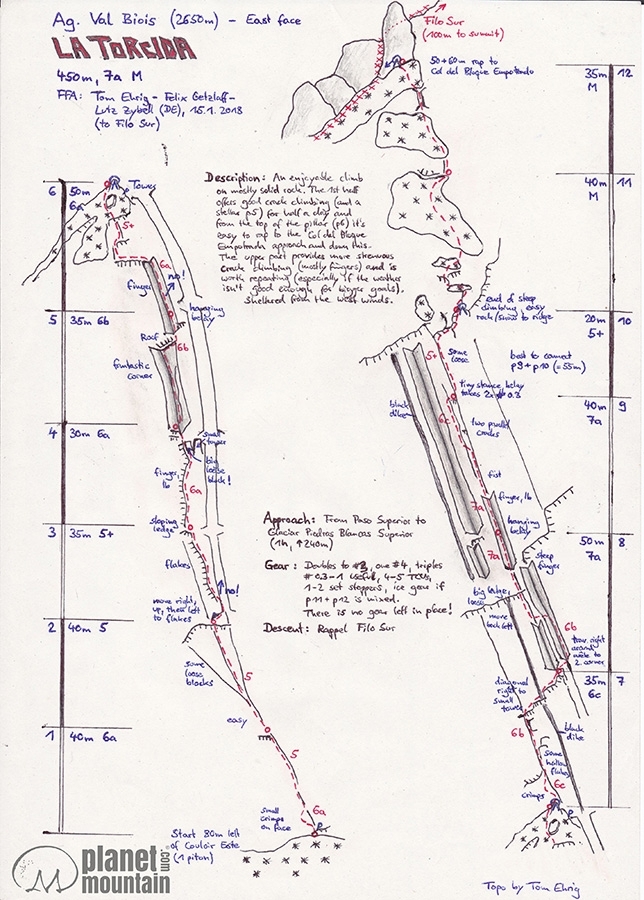 Ag. Val Biois (2650m) - East face
LA TORCIDA
450m, 7a M
FFA: Tom Ehrig - Felix Getzlaff-
Lutz Zybell (DE), 15.1.2018
(to Filo Sur)
Filo Sur
(100m to summit)
50+60m rap to
Col del Bloque Empotrado
Description: An enjoyable climb
on mostly solid rock. The 1st half
offers good crack climbing (and a
stellar p5) for half a day and
from the top of the pillar (p6) it's
easy to rap to the Col del Bloque
Empotrado approach and down this.
The upper part provides more strenuous
crack climbing (mostly fingers) and is
worth repeating (especially if the weather
isn't good enough for bigger goals).
Sheltered from the west winds.
6
50m
6a
Tower
5+
6a
no!
fingers
hanging
belay
5
35m 6b
Roof
6b
fantastic
corner
4
30m 6a
small
tower
big
loose
block!
finger, lb
6a
3
35m 5+
sloping
ledge
flakes
no!
move right,
up, then left
to flakes
2
40m 5
some
loose
blocks
5
easy
1
40m 6a
5
small
crimps
on face
6a
Start 80m left
of Couloir Este
(1 piton)
12
35m
M
11
40m
M
end of steep
climbing, easy
rock/snow to ridge
10
20m
5+
5+
some
loose
best to connect
p9 + p10 (=55m)
tiny stance, belay
takes 2x #0.3
9
40m
7a
black
dike
6c
two parallel
cracks
fist
finger, lb
7a
hanging
belay
8
50m
7a
7a
steep
finger
big ledge,
loose
move
back left
6b
trav. right
around
arête to
2. corner
7
35m
6c
diagonal
right to
small
tower
6b
black
dike
some
hollow
flakes
6c
crimps
Approach: From Paso Superior to
Glaciar Piedras Blancas Superior
(1h, ↑240m)
Gear: Doubles to #3, one #4, triples
#0.3-1 useful, 4-5 TCUs,
1-2 set stoppers, ice gear if
p11 + p12 is mixed.
There is no gear left in place!
Descent: Rappel Filo Sur
planet
mountain
.com
Topo by Tom Ehrig